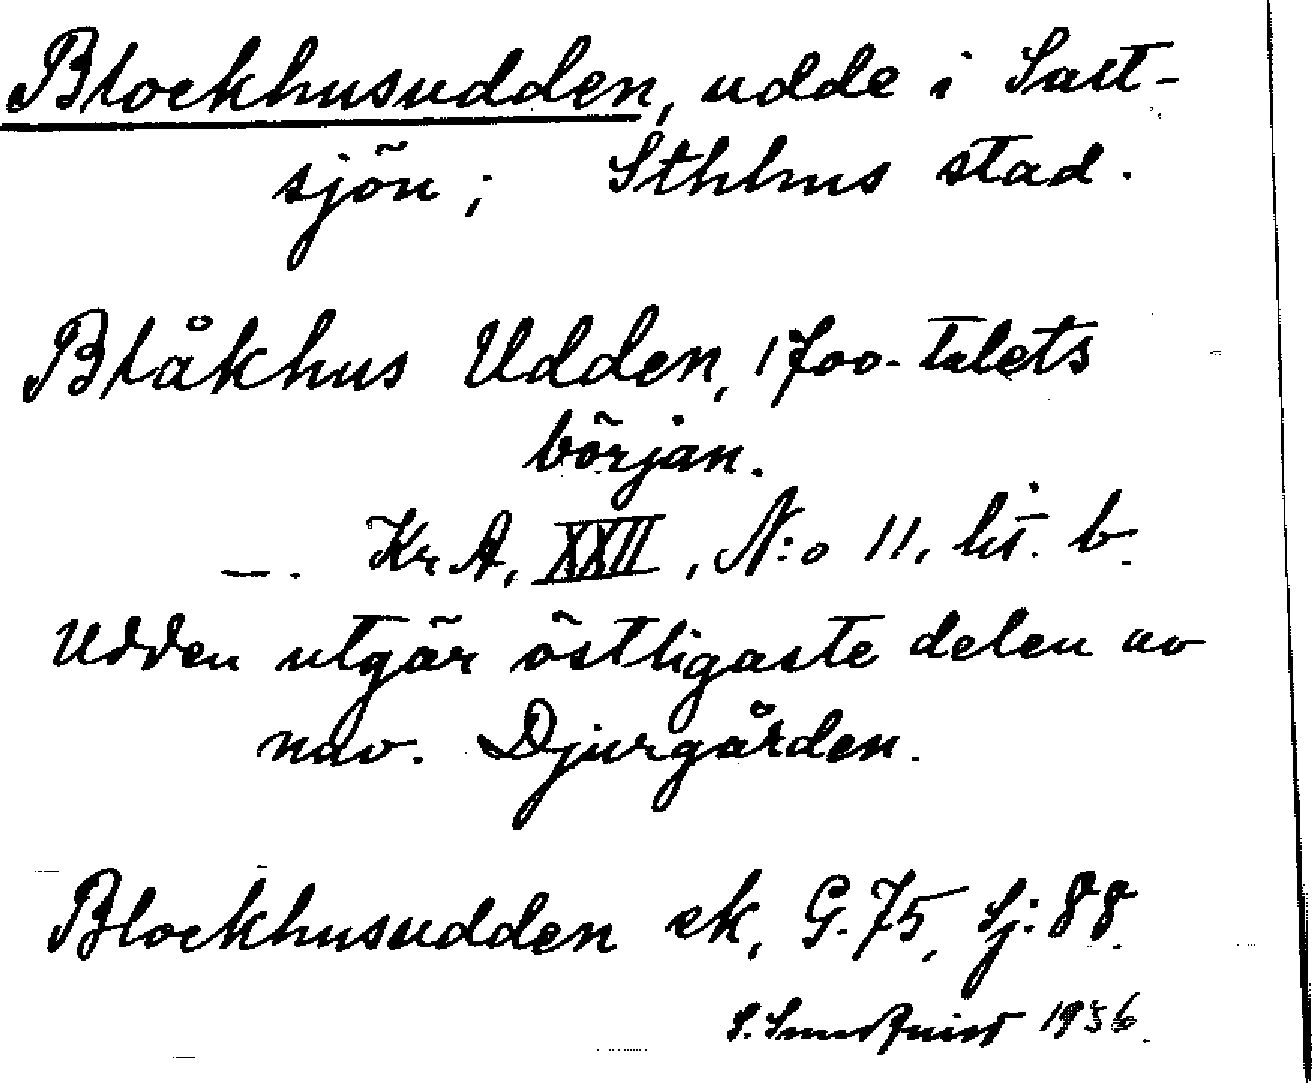 Blockhusudden, udde i Salt-
sjön; Sthlms stad.
Blåkhus Udden, 1700-talets
början.
—. KrA, XXII, N:o 11, lit. b.
Udden utgör östligaste delen av
nuv. Djurgården.
Blockhusudden ek, G. 75, Sj: 88.
S. Sundquist 1936.